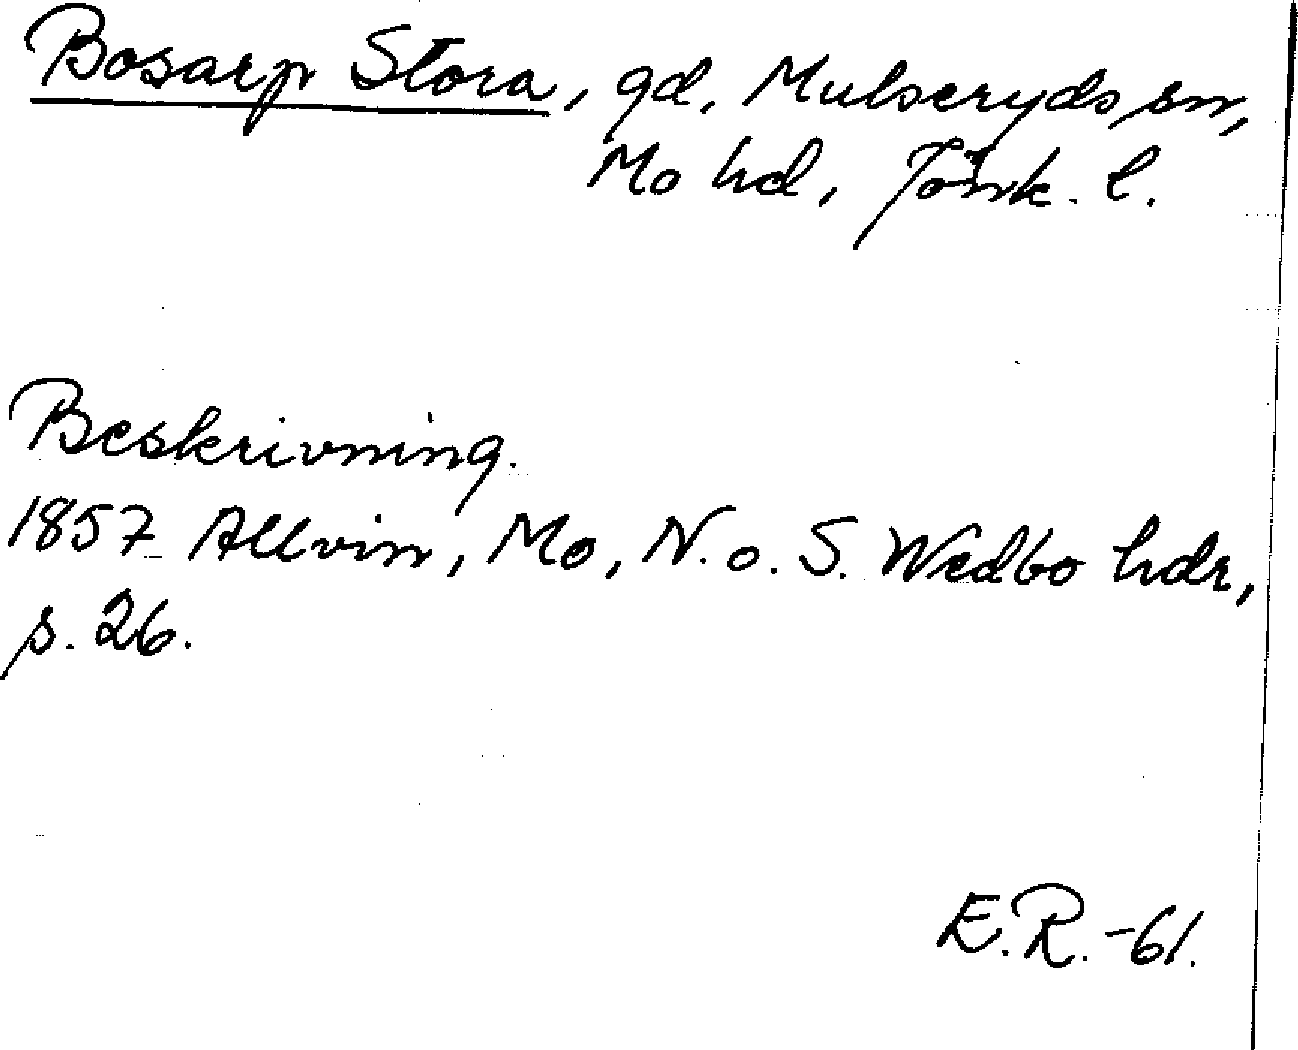 Bosarp Stora, gd, Mulseryds sn,
Mo hd, Jönk. l.
Beskrivning.
1857 Allvin, Mo, N. o. S. Wedbo hdr,
s. 26.
E.R.-61.